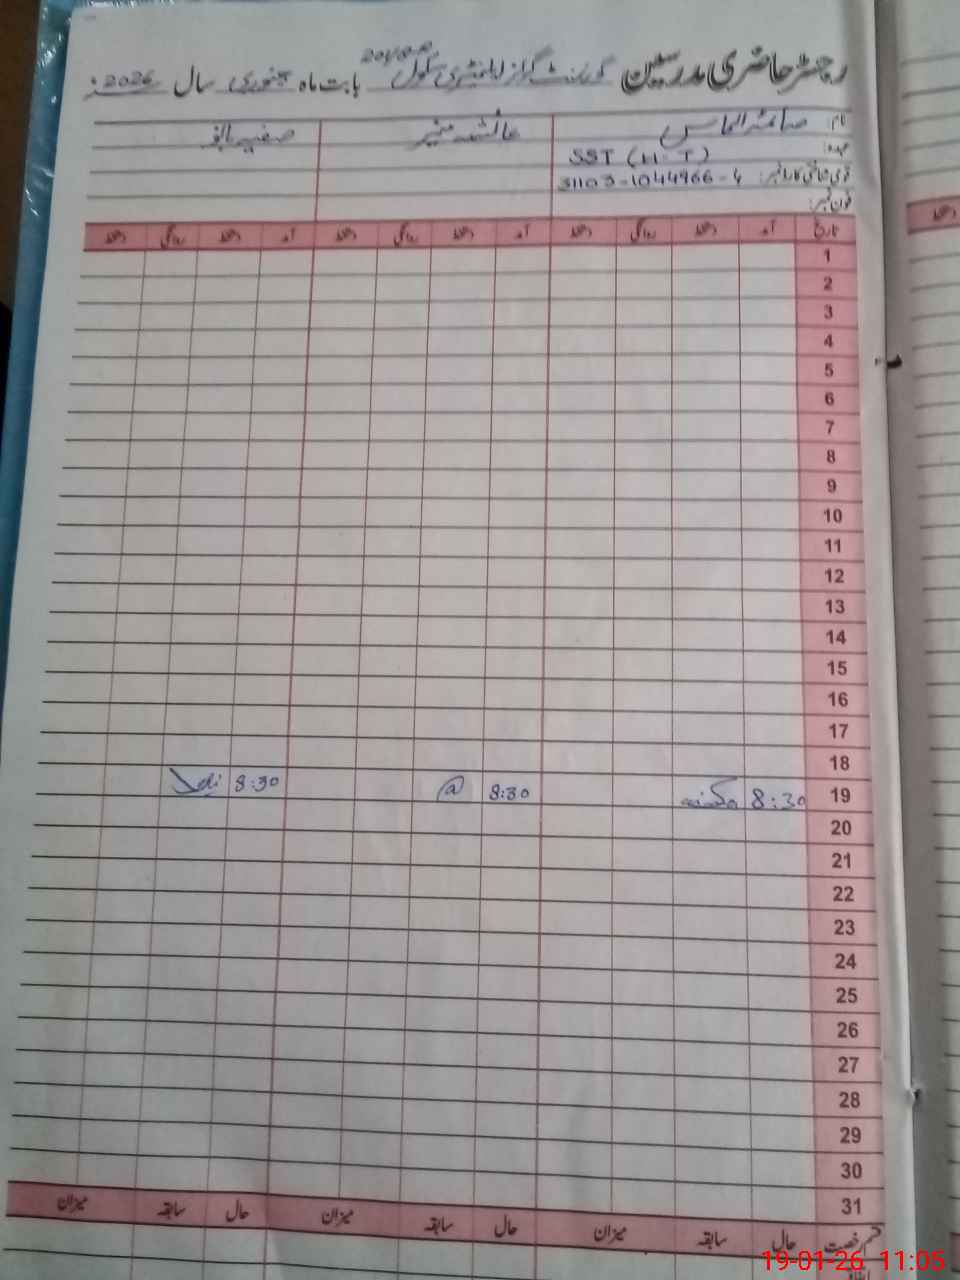 رجسٹر حاضری مدرسین گورنمنٹ گرلز ایلیمنٹری سکول بابت ماہ جنوری سال 2026ء
نام: صائمہ الماس عائشہ منیر صفیہ بانو
عہدہ: SST (H.T)
قومی شناختی کارڈ نمبر: 31103-1044966-4
فون نمبر:
تاریخ آمد دستخط روانگی دستخط آمد دستخط روانگی دستخط آمد دستخط روانگی دستخط
1
2
3
4
5
6
7
8
9
10
11
12
13
14
15
16
17
18
19 8:30 8:30 8:30
20
21
22
23
24
25
26
27
28
29
30
31
قسم رخصت حال سابقہ میزان حال سابقہ میزان حال سابقہ میزان
19-01-26 11:05